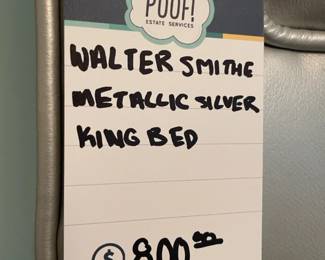 POOF!
ESTATE SERVICES
WALTER SMITHE
METALLIC SILVER
KING BED
$ 800.00